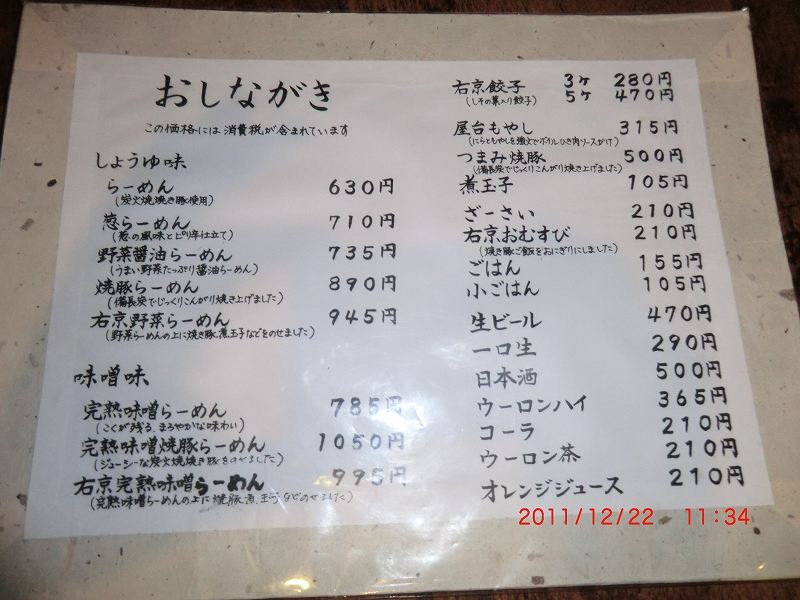 おしながき
この価格には消費税が含まれています
しょうゆ味
らーめん 630円
(炭火焼焼き豚使用)
葱らーめん 710円
(葱の風味とピリ辛仕立て)
野菜醤油らーめん 735円
(うまい野菜たっぷり醤油らーめん)
焼豚らーめん 890円
(備長炭でじっくりこんがり焼き上げました)
右京野菜らーめん 945円
(野菜らーめんの上に焼き豚、煮玉子などをのせました)
味噌味
完熟味噌らーめん 785円
(こくが残る、まろやかな味わい)
完熟味噌焼豚らーめん 1050円
(ジューシーな炭火焼焼き豚をのせました)
右京完熟味噌らーめん 995円
(完熟味噌らーめんの上に焼豚、煮玉子などのせました)
右京餃子 3ケ 280円
(しその葉入り餃子) 5ケ 470円
屋台もやし 315円
(にらともやしを強火でボイルひき肉ソースがけ)
つまみ焼豚 500円
(備長炭でじっくりこんがり焼き上げました)
煮玉子 105円
ざーさい 210円
右京おむすび 210円
(焼き豚ご飯をおにぎりにしました)
ごはん 155円
小ごはん 105円
生ビール 470円
一口生 290円
日本酒 500円
ウーロンハイ 365円
コーラ 210円
ウーロン茶 210円
オレンジジュース 210円
2011/12/22 11:34